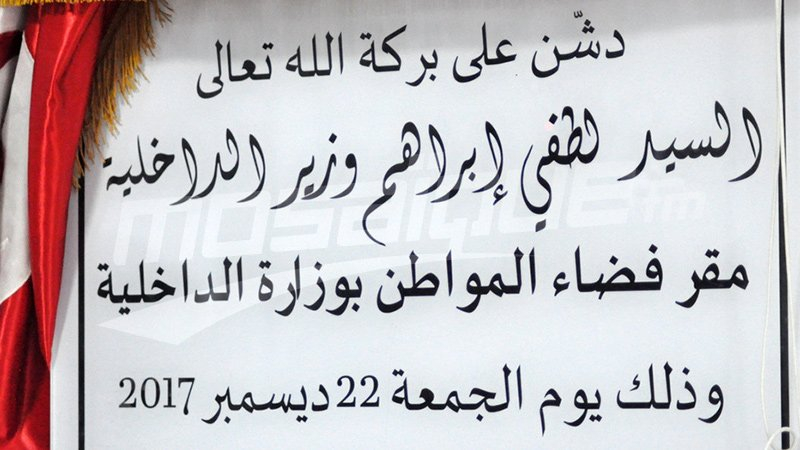 دشّن على بركة الله تعالى
السيد لطفي إبراهم وزير الداخلية
mosaique fm
مقر فضاء المواطن بوزارة الداخلية
وذلك يوم الجمعة 22 ديسمبر 2017